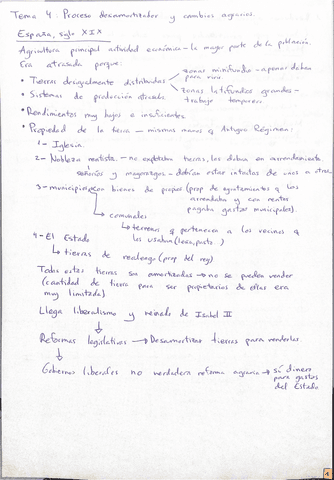 Tema 4. Proceso desamortizador y cambios agrarios.
España, siglo XIX
Agricultura principal actividad económica - la mayor parte de la población.
Era atrasada porque:
zonas minifundio - apenas daban para vivir.
• Tierras desigualmente distribuidas
zonas latifundios grandes - trabajo temporero.
• Sistemas de producción atrasada
• Rendimientos muy bajos e insuficientes.
• Propiedad de la tierra - mismas manos q Antiguo Régimen:
1- Iglesia.
2- Nobleza rentista - no explotaban tierras, las daban en arrendamiento.
señoríos y mayorazgos - debían estar intactas de unos a otros
3- municipios con bienes de propios (prop de ayuntamientos q los
arrendaban y con rentas
pagaba gastos municipales).
comunales
↳ terrenos q pertenecen a los vecinos q
los usaban (leña, pasto)
4- El Estado
↳ tierras de realengo (prop del rey)
Todas estas tierras son amortizadas → no se pueden vender
(cantidad de tierra para ser propietarios de ellas era
muy limitada)
Llega liberalismo y reinado de Isabel II
Reformas legislativas → Desamortizar tierras para venderlas.
Gobiernos liberales no verdadera reforma agraria → sí dinero
para gastos
del Estado